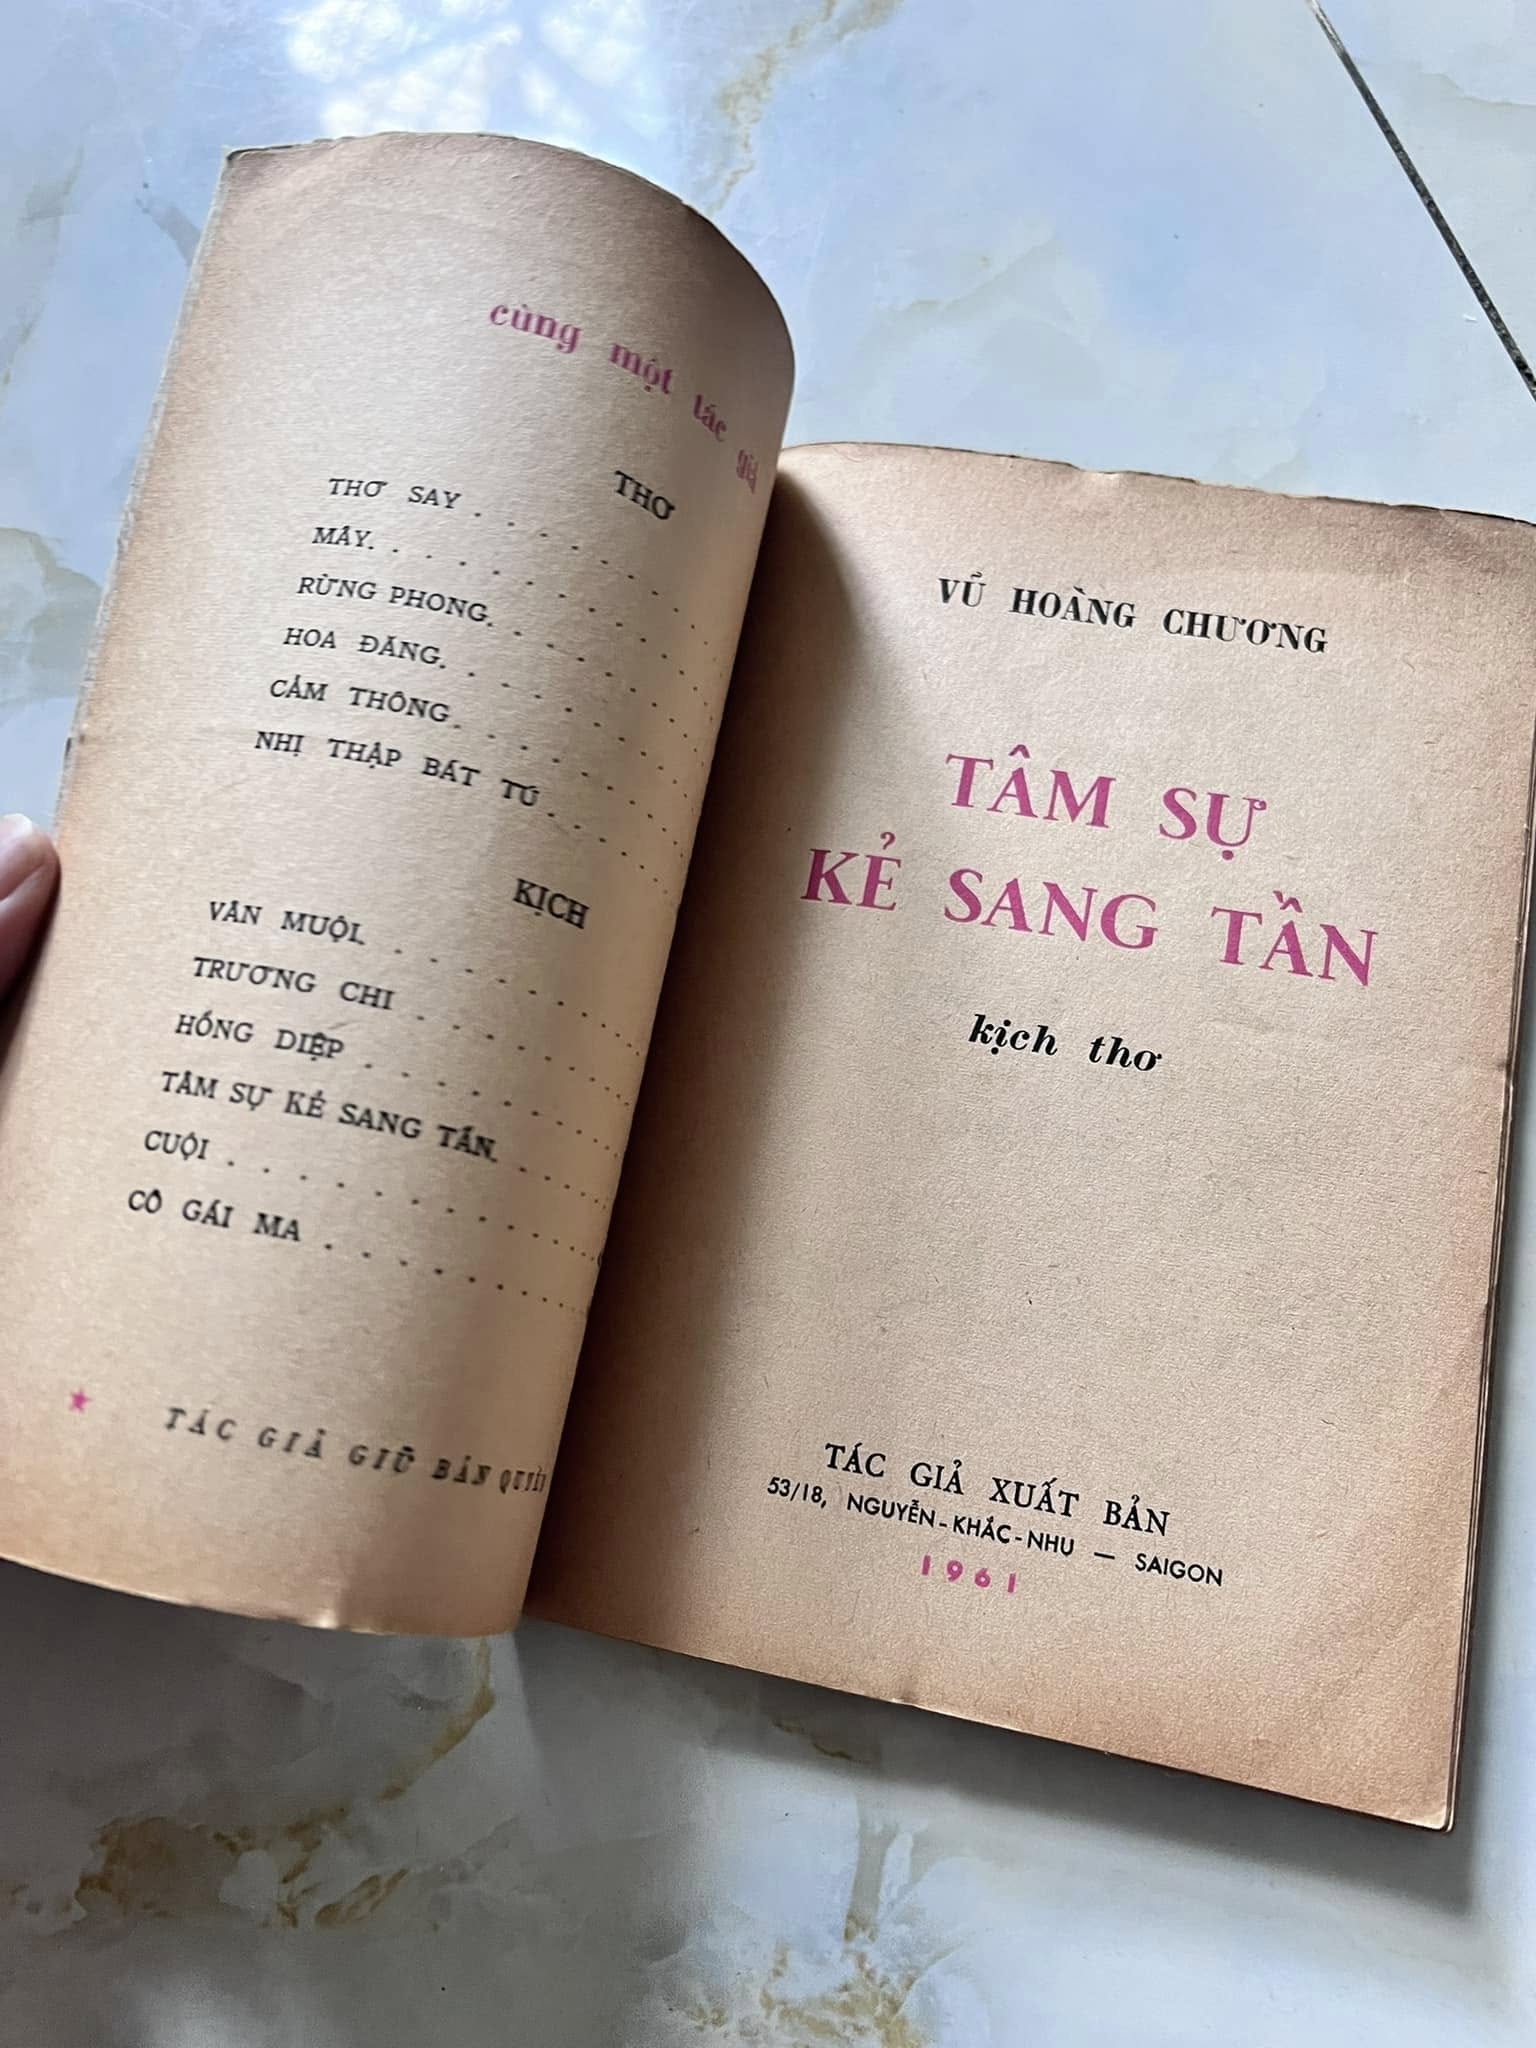 cùng một tác giả
THƠ
THƠ SAY . . . . . .
MÂY. . . . . . . . .
RỪNG PHONG. . . . . . .
HOA ĐĂNG. . . . . . . .
CẢM THÔNG. . . . . . . .
NHỊ THẬP BÁT TÚ . . . . .
KỊCH
VÂN MUỘI. . . . . . . .
TRƯƠNG CHI . . . . . . .
HỒNG DIỆP . . . . . . . .
TÂM SỰ KẺ SANG TẦN. . . . .
CUỘI . . . . . . . . . .
CÔ GÁI MA . . . . . . . .
★ TÁC GIẢ GIỮ BẢN QUYỀN
VŨ HOÀNG CHƯƠNG
TÂM SỰ
KẺ SANG TẦN
kịch thơ
TÁC GIẢ XUẤT BẢN
53/18, NGUYỄN-KHẮC-NHU — SAIGON
1961